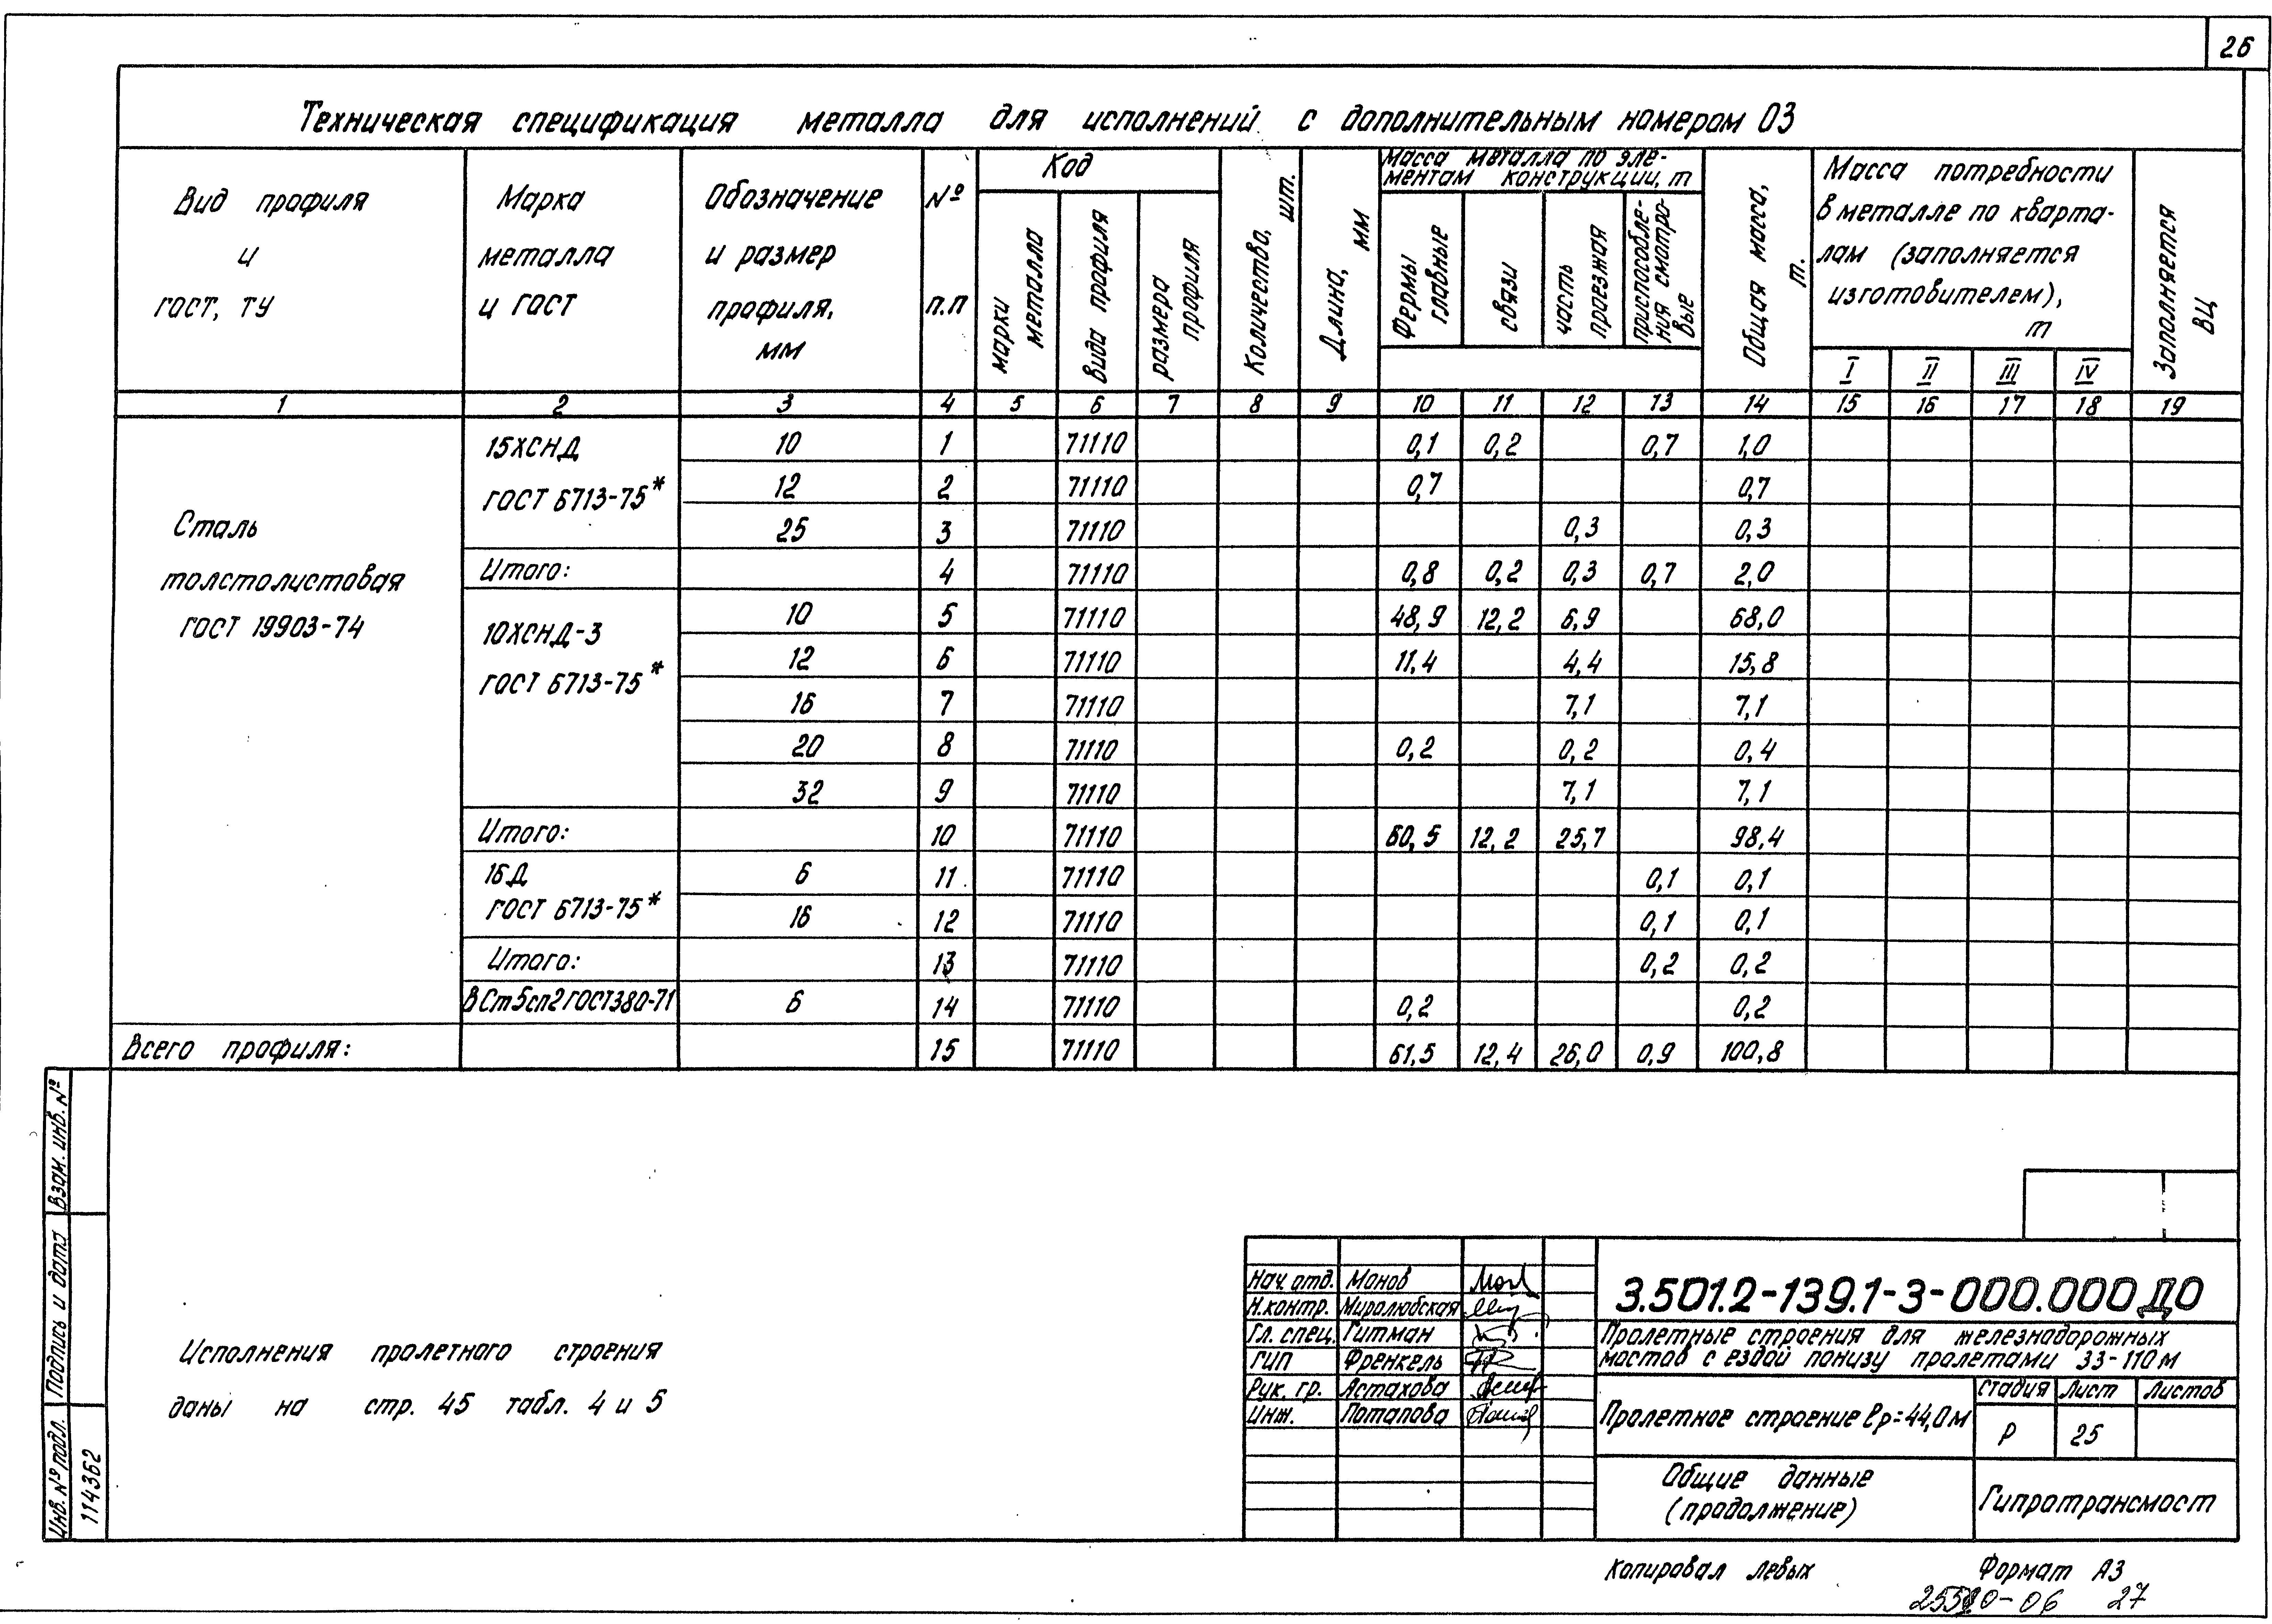 26
Техническая спецификация металла для исполнений с дополнительным номером 03
Вид профиля и гост, ту
Марка металла и гост
Обозначение и размер профиля, мм
№ п.п
Код
марки металла
вида профиля
размера профиля
Количество, шт.
Длина, мм
Масса металла по элементам конструкции, т
Фермы главные
связи
часть проезжая
приспособления смотровые
Общая масса, т.
Масса потребности в металле по кварталам (заполняется изготовителем), т
I II III IV
Заполняется ВЦ
1 2 3 4 5 6 7 8 9 10 11 12 13 14 15 16 17 18 19
Сталь
толстолистовая
гост 19903-74
15ХСНД
гост 6713-75*
10 1 71110 0,1 0,2 0,7 1,0
12 2 71110 0,7 0,7
25 3 71110 0,3 0,3
Итого: 4 71110 0,8 0,2 0,3 0,7 2,0
10ХСНД-3
гост 6713-75*
10 5 71110 48,9 12,2 6,9 68,0
12 6 71110 11,4 4,4 15,8
16 7 71110 7,1 7,1
20 8 71110 0,2 0,2 0,4
32 9 71110 7,1 7,1
Итого: 10 71110 60,5 12,2 25,7 98,4
16Д
гост 6713-75*
6 11 71110 0,1 0,1
16 12 71110 0,1 0,1
Итого: 13 71110 0,2 0,2
вСт5сп2 гост380-71 6 14 71110 0,2 0,2
Всего профиля: 15 71110 61,5 12,4 26,0 0,9 100,8
Исполнения пролетного строения
даны на стр. 45 табл. 4 и 5
Взам. инв. №
Подпись и дата
Инв. № подл.
114362
Нач. отд. Монов
Н.контр. Миролюбская
Гл. спец. Гитман
ГИП Френкель
Рук. гр. Астахова
Инж. Потапова
3.501.2-139.1-3-000.000 ДО
Пролетные строения для железнодорожных
мостов с ездой понизу пролетами 33-110 м
Пролетное строение lр=44,0м
Стадия Лист Листов
Р 25
Общие данные
(продолжение)
Гипротрансмост
Копировал Левых Формат А3
27